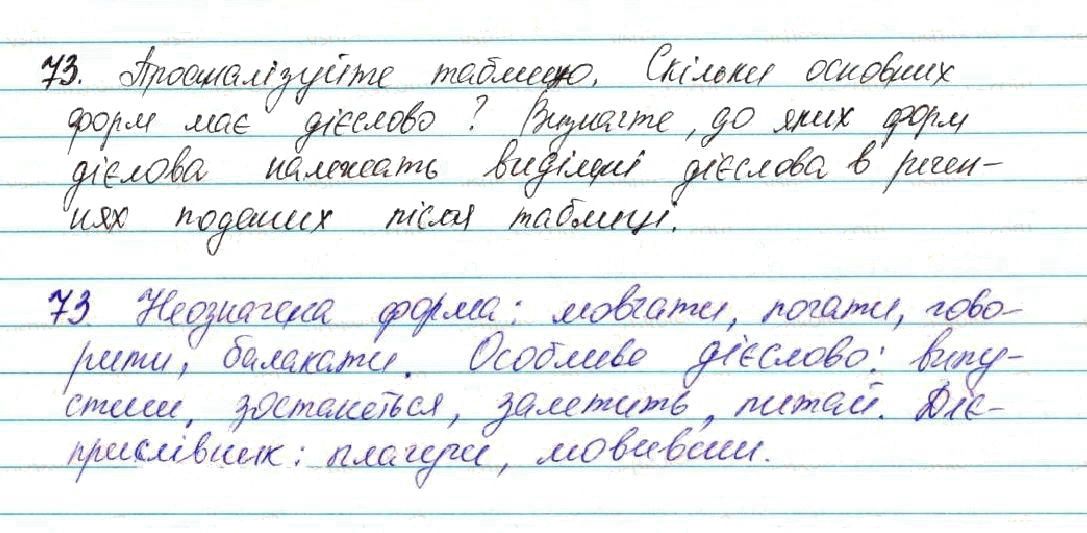 73. Проаналізуйте таблицю. Скільки основних
форм має дієслово? Визначте, до яких форм
дієлова належать виділені дієслова в речен-
нях поданих після таблиці.
73 Неозначена форма: мовчати, почати, гово-
рити, балакати. Особливе дієслово: випу-
стиш, зостанеться, залетить, питай. Діє-
прислівник: плачучи, мовивши.